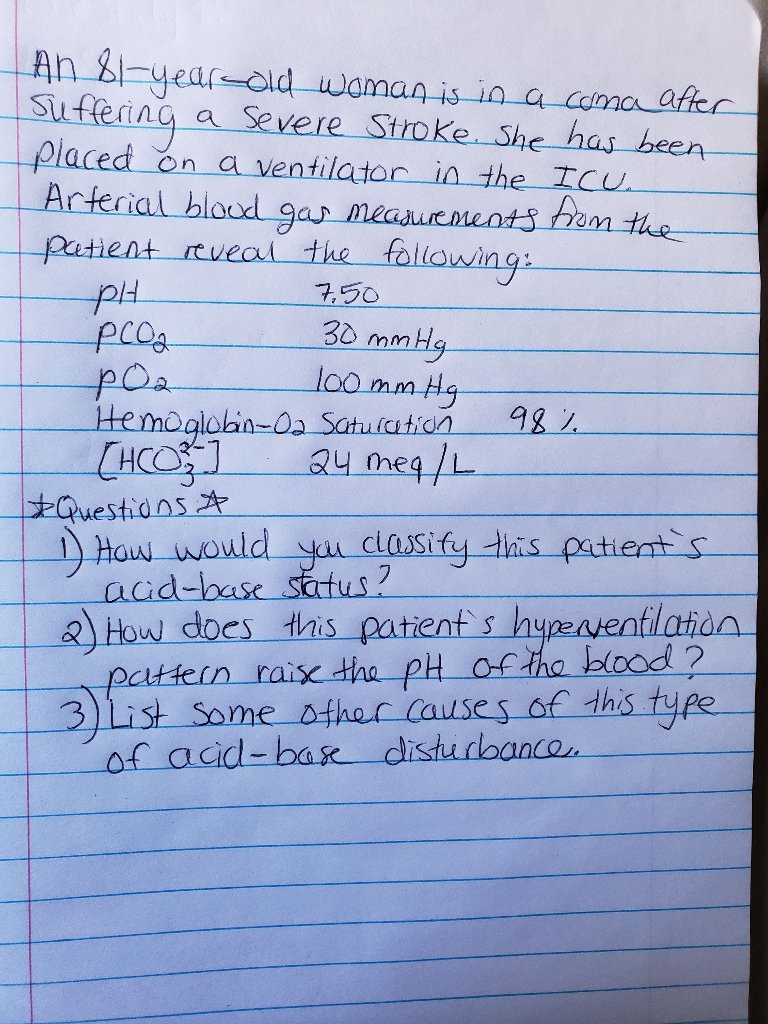 An 81-year-old woman is in a coma after
suffering a severe stroke. She has been
placed on a ventilator in the ICU.
Arterial blood gas measurements from the
patient reveal the following:
pH 7.50
pCO₂ 30 mmHg
pO₂ 100 mm Hg
Hemoglobin-O₂ Saturation 98 %
[HCO₃²⁻] 24 meq/L
☆Questions☆
1) How would you classify this patient's
acid-base status?
2) How does this patient's hyperventilation
pattern raise the pH of the blood?
3) List some other causes of this type
of acid-base disturbance.